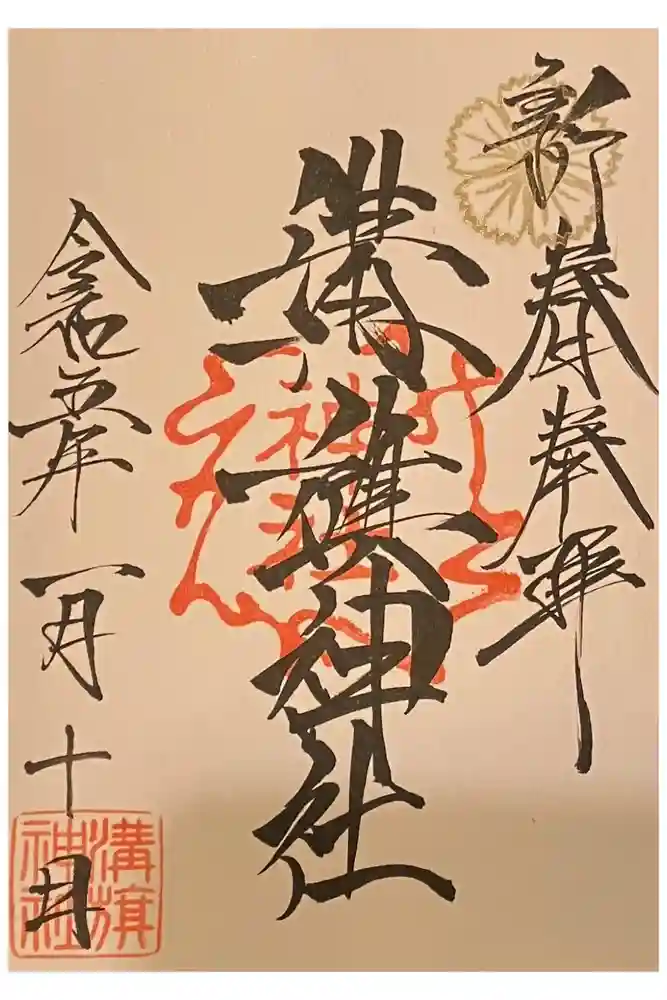 新春奉拝
溝旗神社
神社
令和五年
一月
十日
溝旗
神社